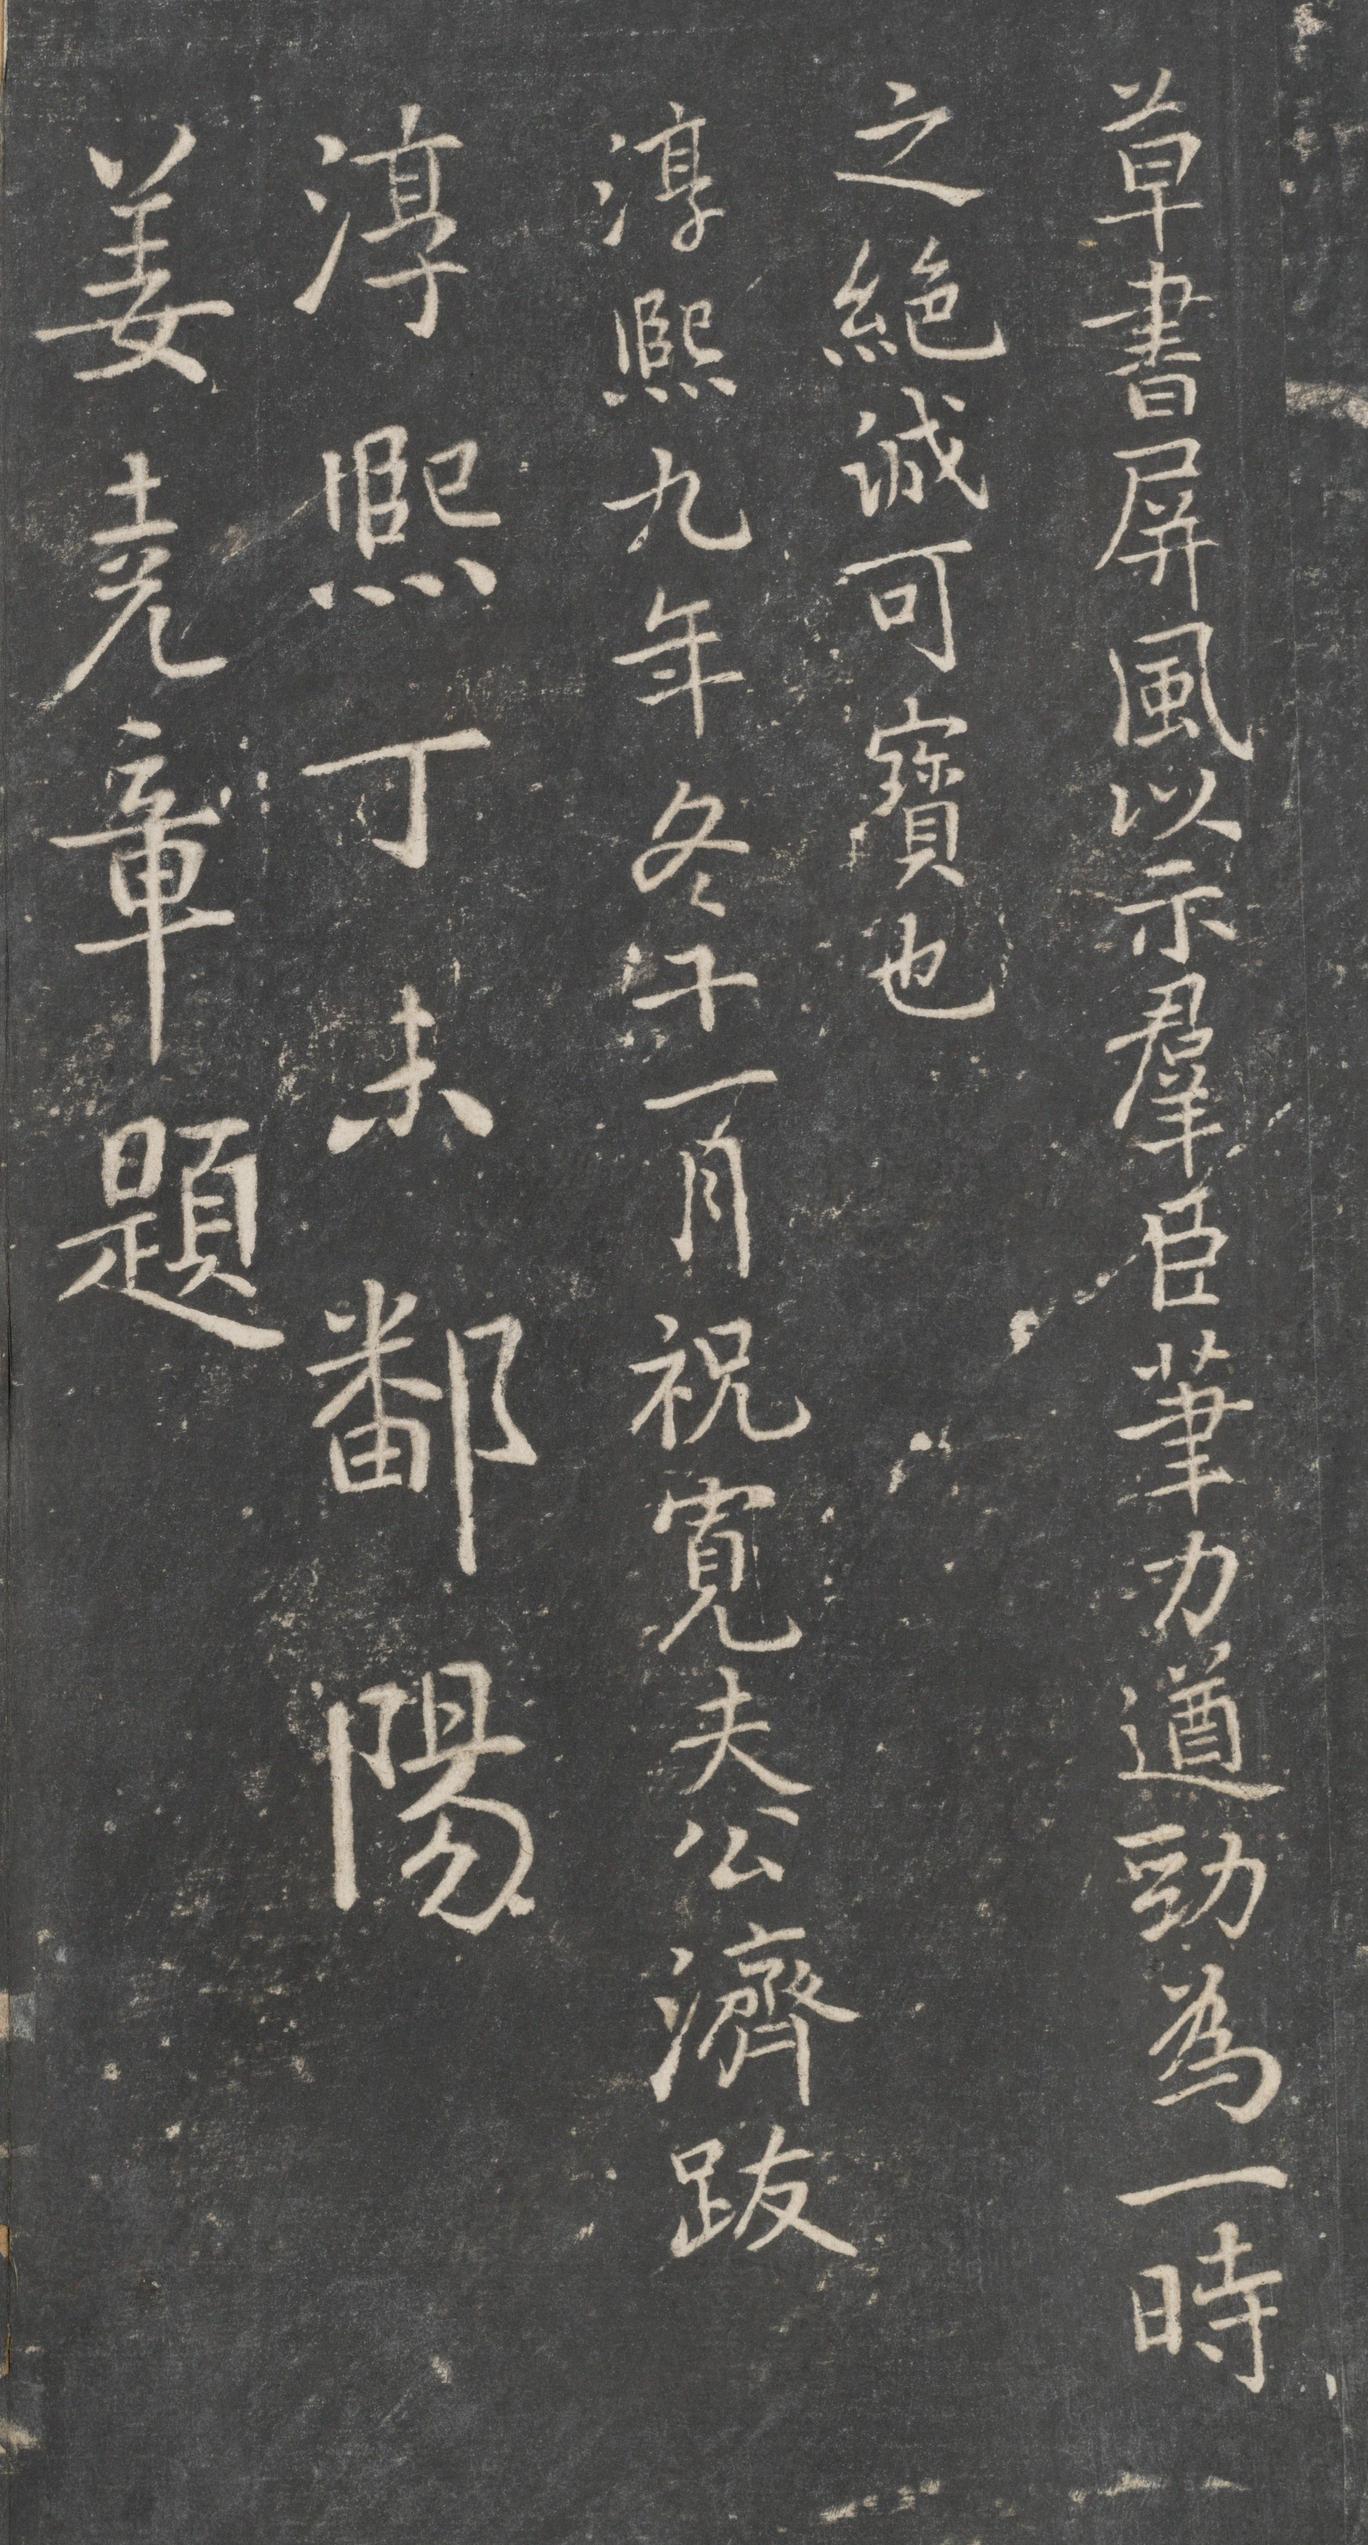 草書屏風以示羣臣筆力遒勁為一時
之絕誠可寶也
淳熙九年冬十一月祝寬夫公濟跋
淳熙丁未鄱陽
姜堯章題